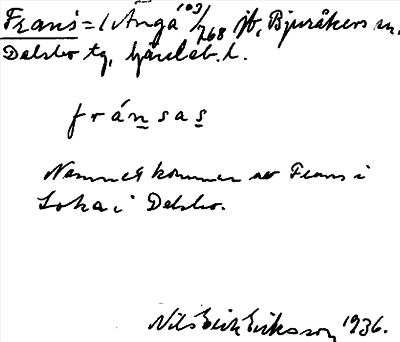 Frans = i Änga 103/268 jfr, Bjuråkers sn,
Delsbo tg, Gävleb. l.
fránsas
Namnet kommer av Frans i
Loka i Delsbo.
Nils Erik Eriksson 1936.